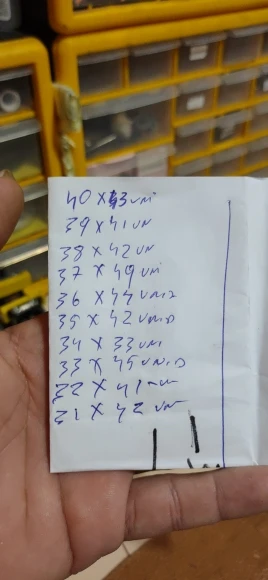 40 X 43 UNI
39 X 41 UN
38 X 42 UN
37 X 49 UNI
36 X 44 UNID
35 X 42 UNID
34 X 33 UNI
33 X 45 UNID
32 X 41 UN
31 X 42 UN